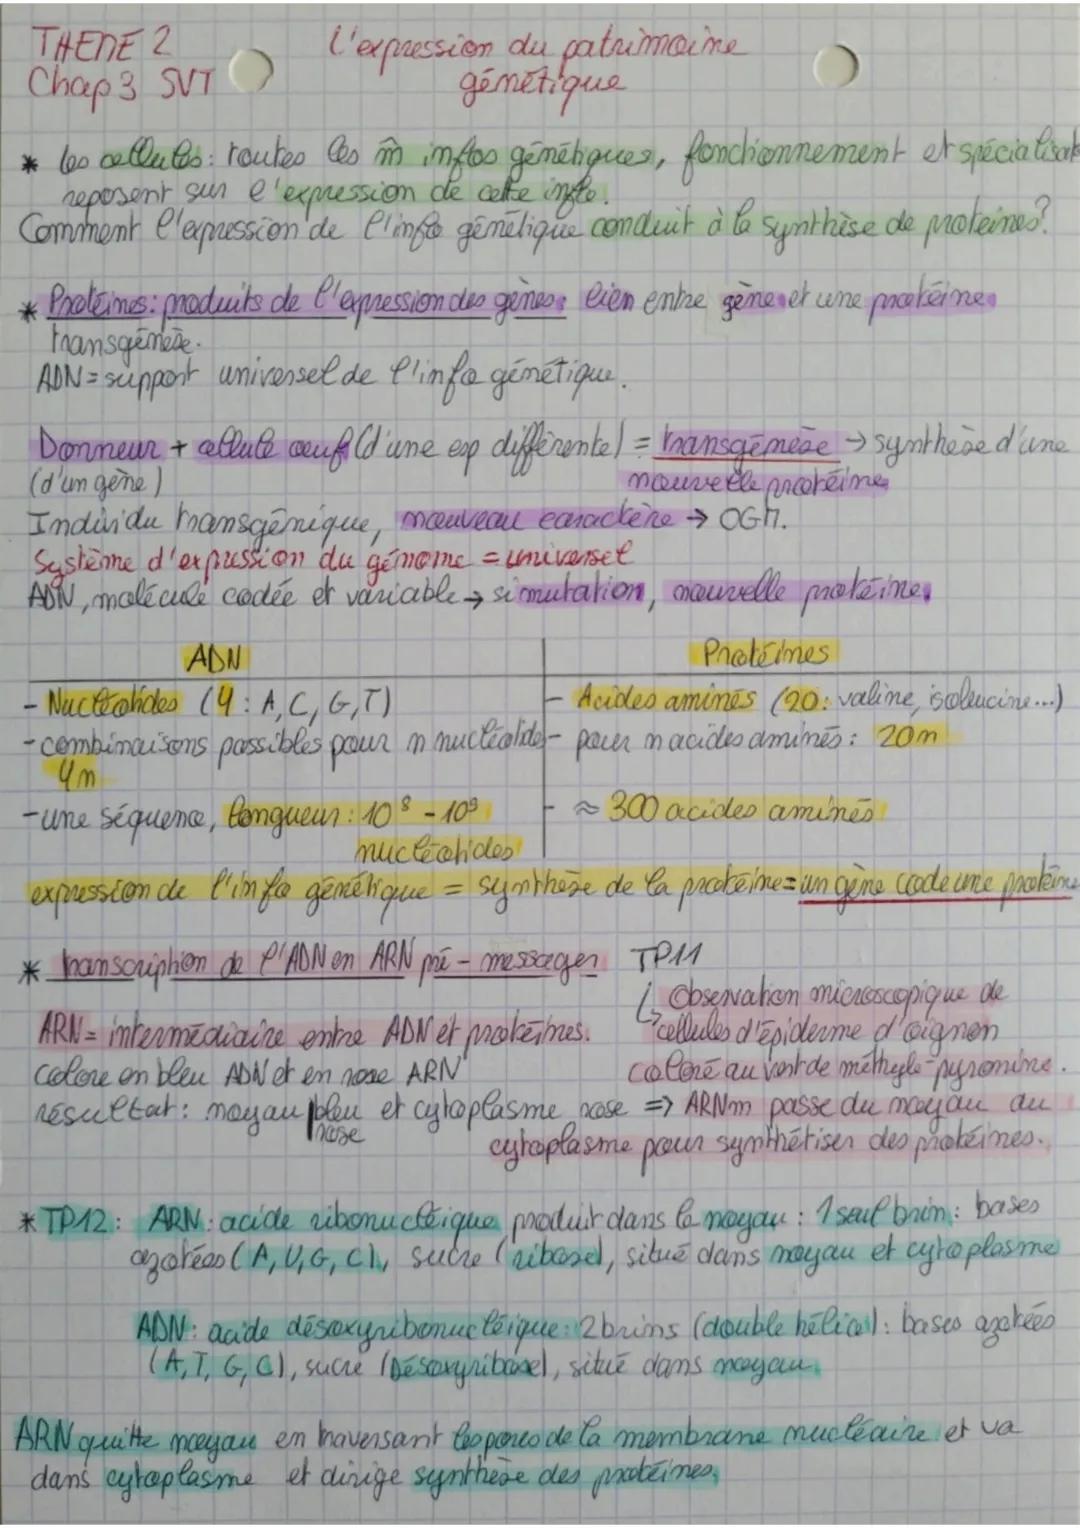 THEME 2
Chap 3 SVT
L'expression du patrimoine
génétique
* les cellules : toutes les m̂ infos génétiques, fonctionnement et spécialisat
reposent sur l'expression de cette info.
Comment l'expression de l'info génétique conduit à la synthèse de protéines?
* Protéines : produits de l'expression des gènes : lien entre gène et une protéine
transgénèse.
ADN = support universel de l'info génétique.
Donneur + cellule œuf (d'une esp différente) = transgénèse → synthèse d'une
(d'un gène) nouvelle protéine
Individu transgénique, nouveau caractère → OGM.
Système d'expression du génome = universel
ADN, molécule codée et variable → si mutation, nouvelle protéine.
ADN
- Nucléotides (4 : A, C, G, T)
- combinaisons possibles pour n nucléotides
4n
- une séquence, longueur : 10⁸ - 10⁹
nucléotides
Protéines
- Acides aminés (20 : valine, isoleucine...)
- pour n acides aminés : 20n
- ≈ 300 acides aminés
expression de l'info génétique = synthèse de la protéine = un gène code une protéine
* transcription de l'ADN en ARN pré-messager
ARN = intermédiaire entre ADN et protéines.
colore en bleu ADN et en rose ARN
TP11
↳ Observation microscopique de
cellules d'épiderme d'oignon
coloré au vert de méthyle-pyronine.
résultat : noyau bleu et cytoplasme rose => ARNm passe du noyau au
rose
cytoplasme pour synthétiser des protéines.
* TP12 : ARN : acide ribonucléique produit dans le noyau : 1 seul brin : bases
azotées (A, U, G, C), sucre (ribose), situé dans noyau et cytoplasme
ADN : acide désoxyribonucléique : 2 brins (double hélice) : bases azotées
(A, T, G, C), sucre (Désoxyribose), situé dans noyau.
ARN quitte noyau en traversant les pores de la membrane nucléaire et va
dans cytoplasme et dirige synthèse des protéines.